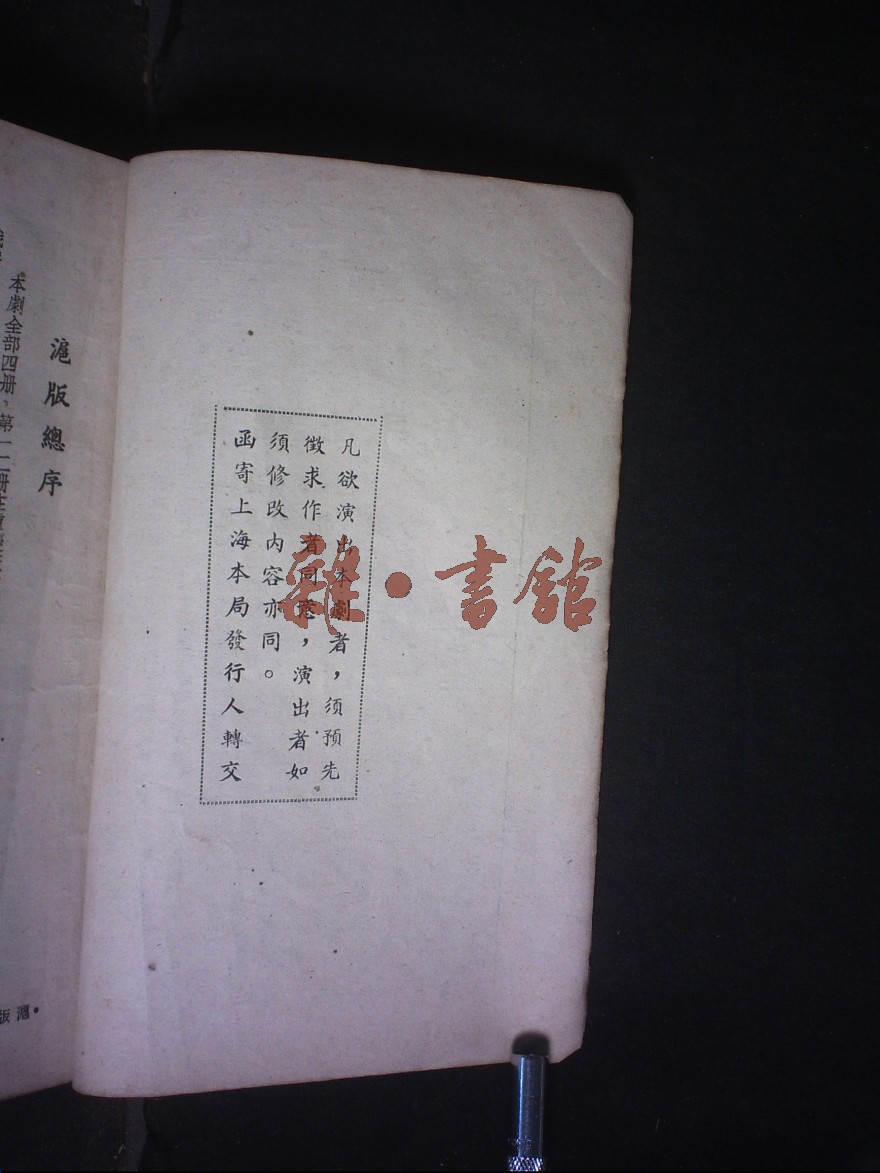 凡欲演出本劇者，須預先
徵求作者同意，演出者如
須修改内容亦同。
函寄上海本局發行人轉交
雜·書館
滬版總序
本劇全部四册，第一二册在
滬版